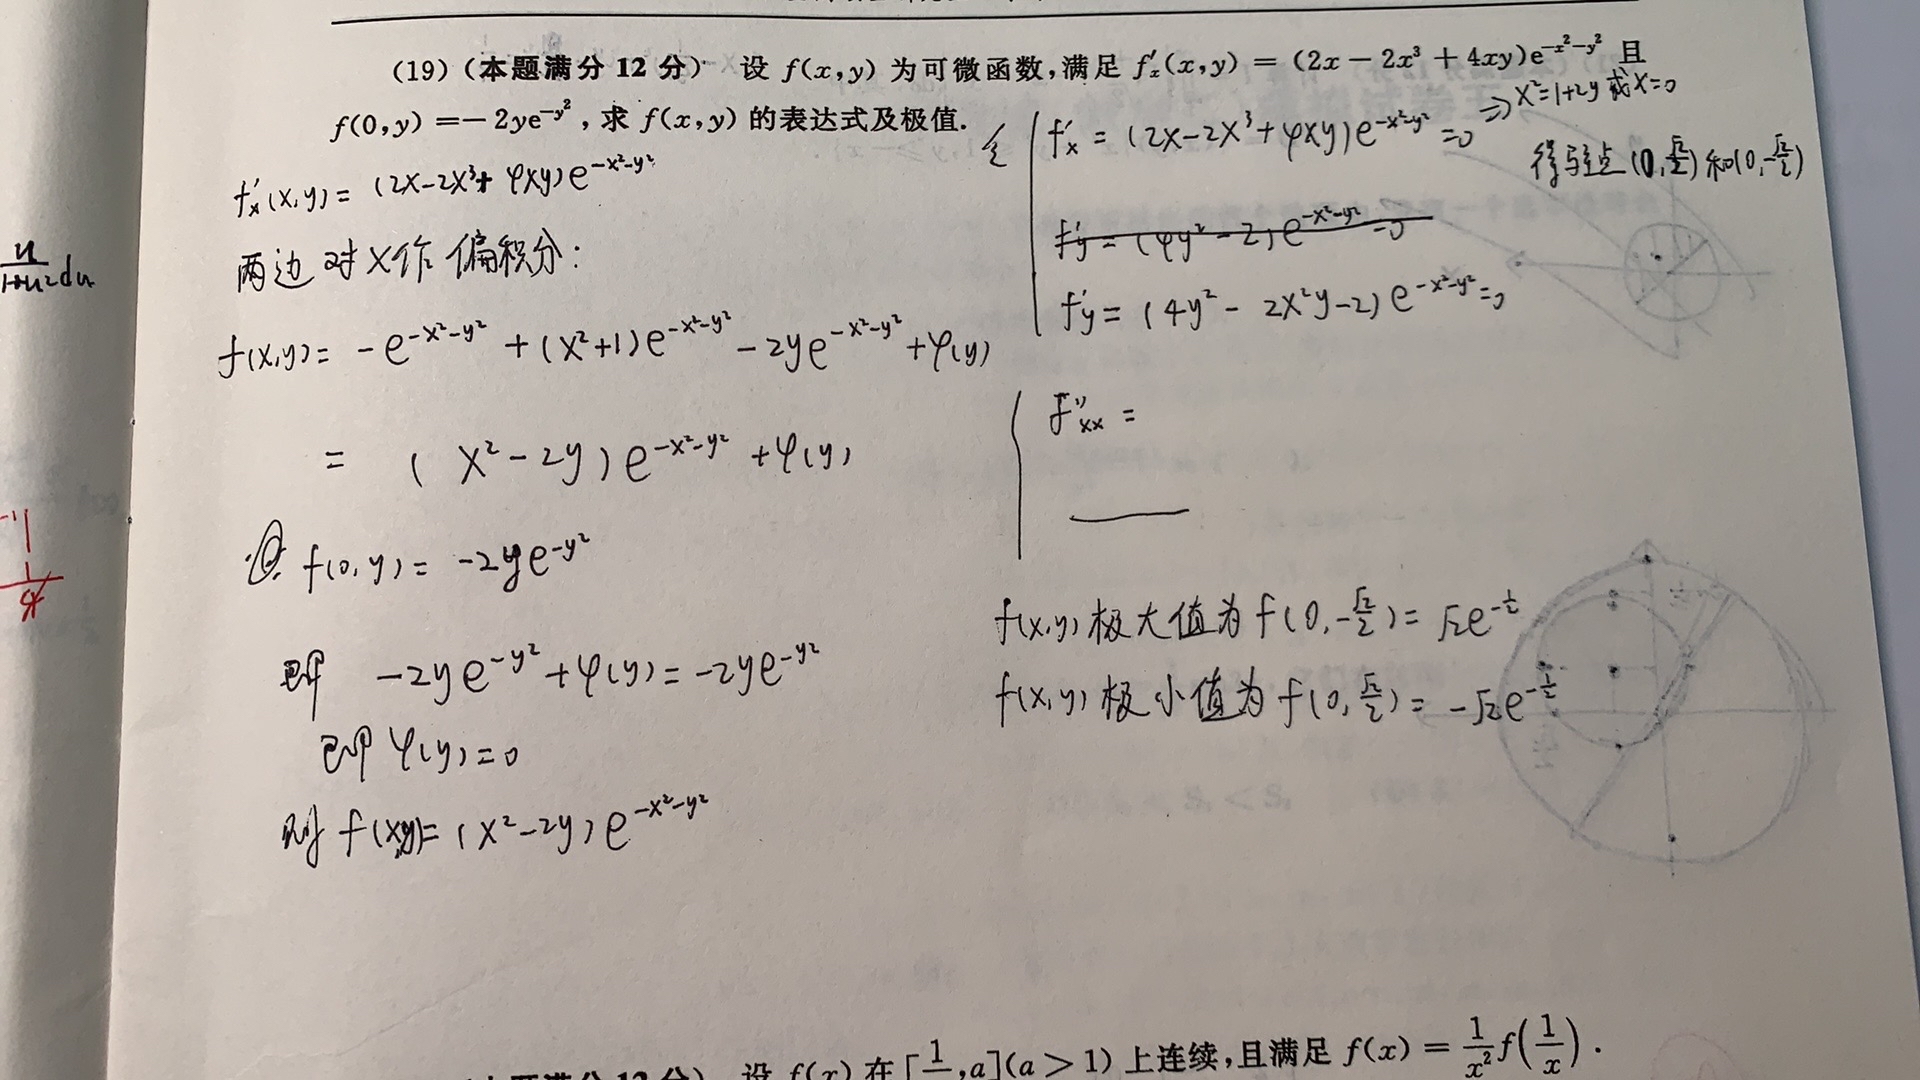 (19)(本题满分 12 分) 设 f(x,y) 为可微函数,满足 f′ₓ(x,y) = (2x − 2x³ + 4xy)e^{−x²−y²} 且
f(0,y) = − 2ye^{−y²}, 求 f(x,y) 的表达式及极值.
f′ₓ(x,y) = (2x−2x³+4xy)e^{−x²−y²}
两边对x作偏积分:
f(x,y) = −e^{−x²−y²} + (x²+1)e^{−x²−y²} − 2ye^{−x²−y²} + φ(y)
= (x²−2y)e^{−x²−y²} + φ(y)
f(0,y) = −2ye^{−y²}
即 −2ye^{−y²} + φ(y) = −2ye^{−y²}
即 φ(y) = 0
则 f(x,y) = (x²−2y)e^{−x²−y²}
令 f′ₓ = (2x−2x³+4xy)e^{−x²−y²} = 0 ⇒ x²=1+2y 或 x=0
得驻点 (0, √2/2) 和 (0, −√2/2)
f′y = (4y²−2)e^{−x²−y²} = 0
f′y = (4y² − 2x²y − 2)e^{−x²−y²} = 0
f″xx =
f(x,y) 极大值为 f(0, −√2/2) = √2e^{−1/2}
f(x,y) 极小值为 f(0, √2/2) = −√2e^{−1/2}
u/1+u² du
−1
1
(本题满分 12 分) 设 f(x) 在 [1/a, a](a > 1) 上连续,且满足 f(x) = 1/x² f(1/x).